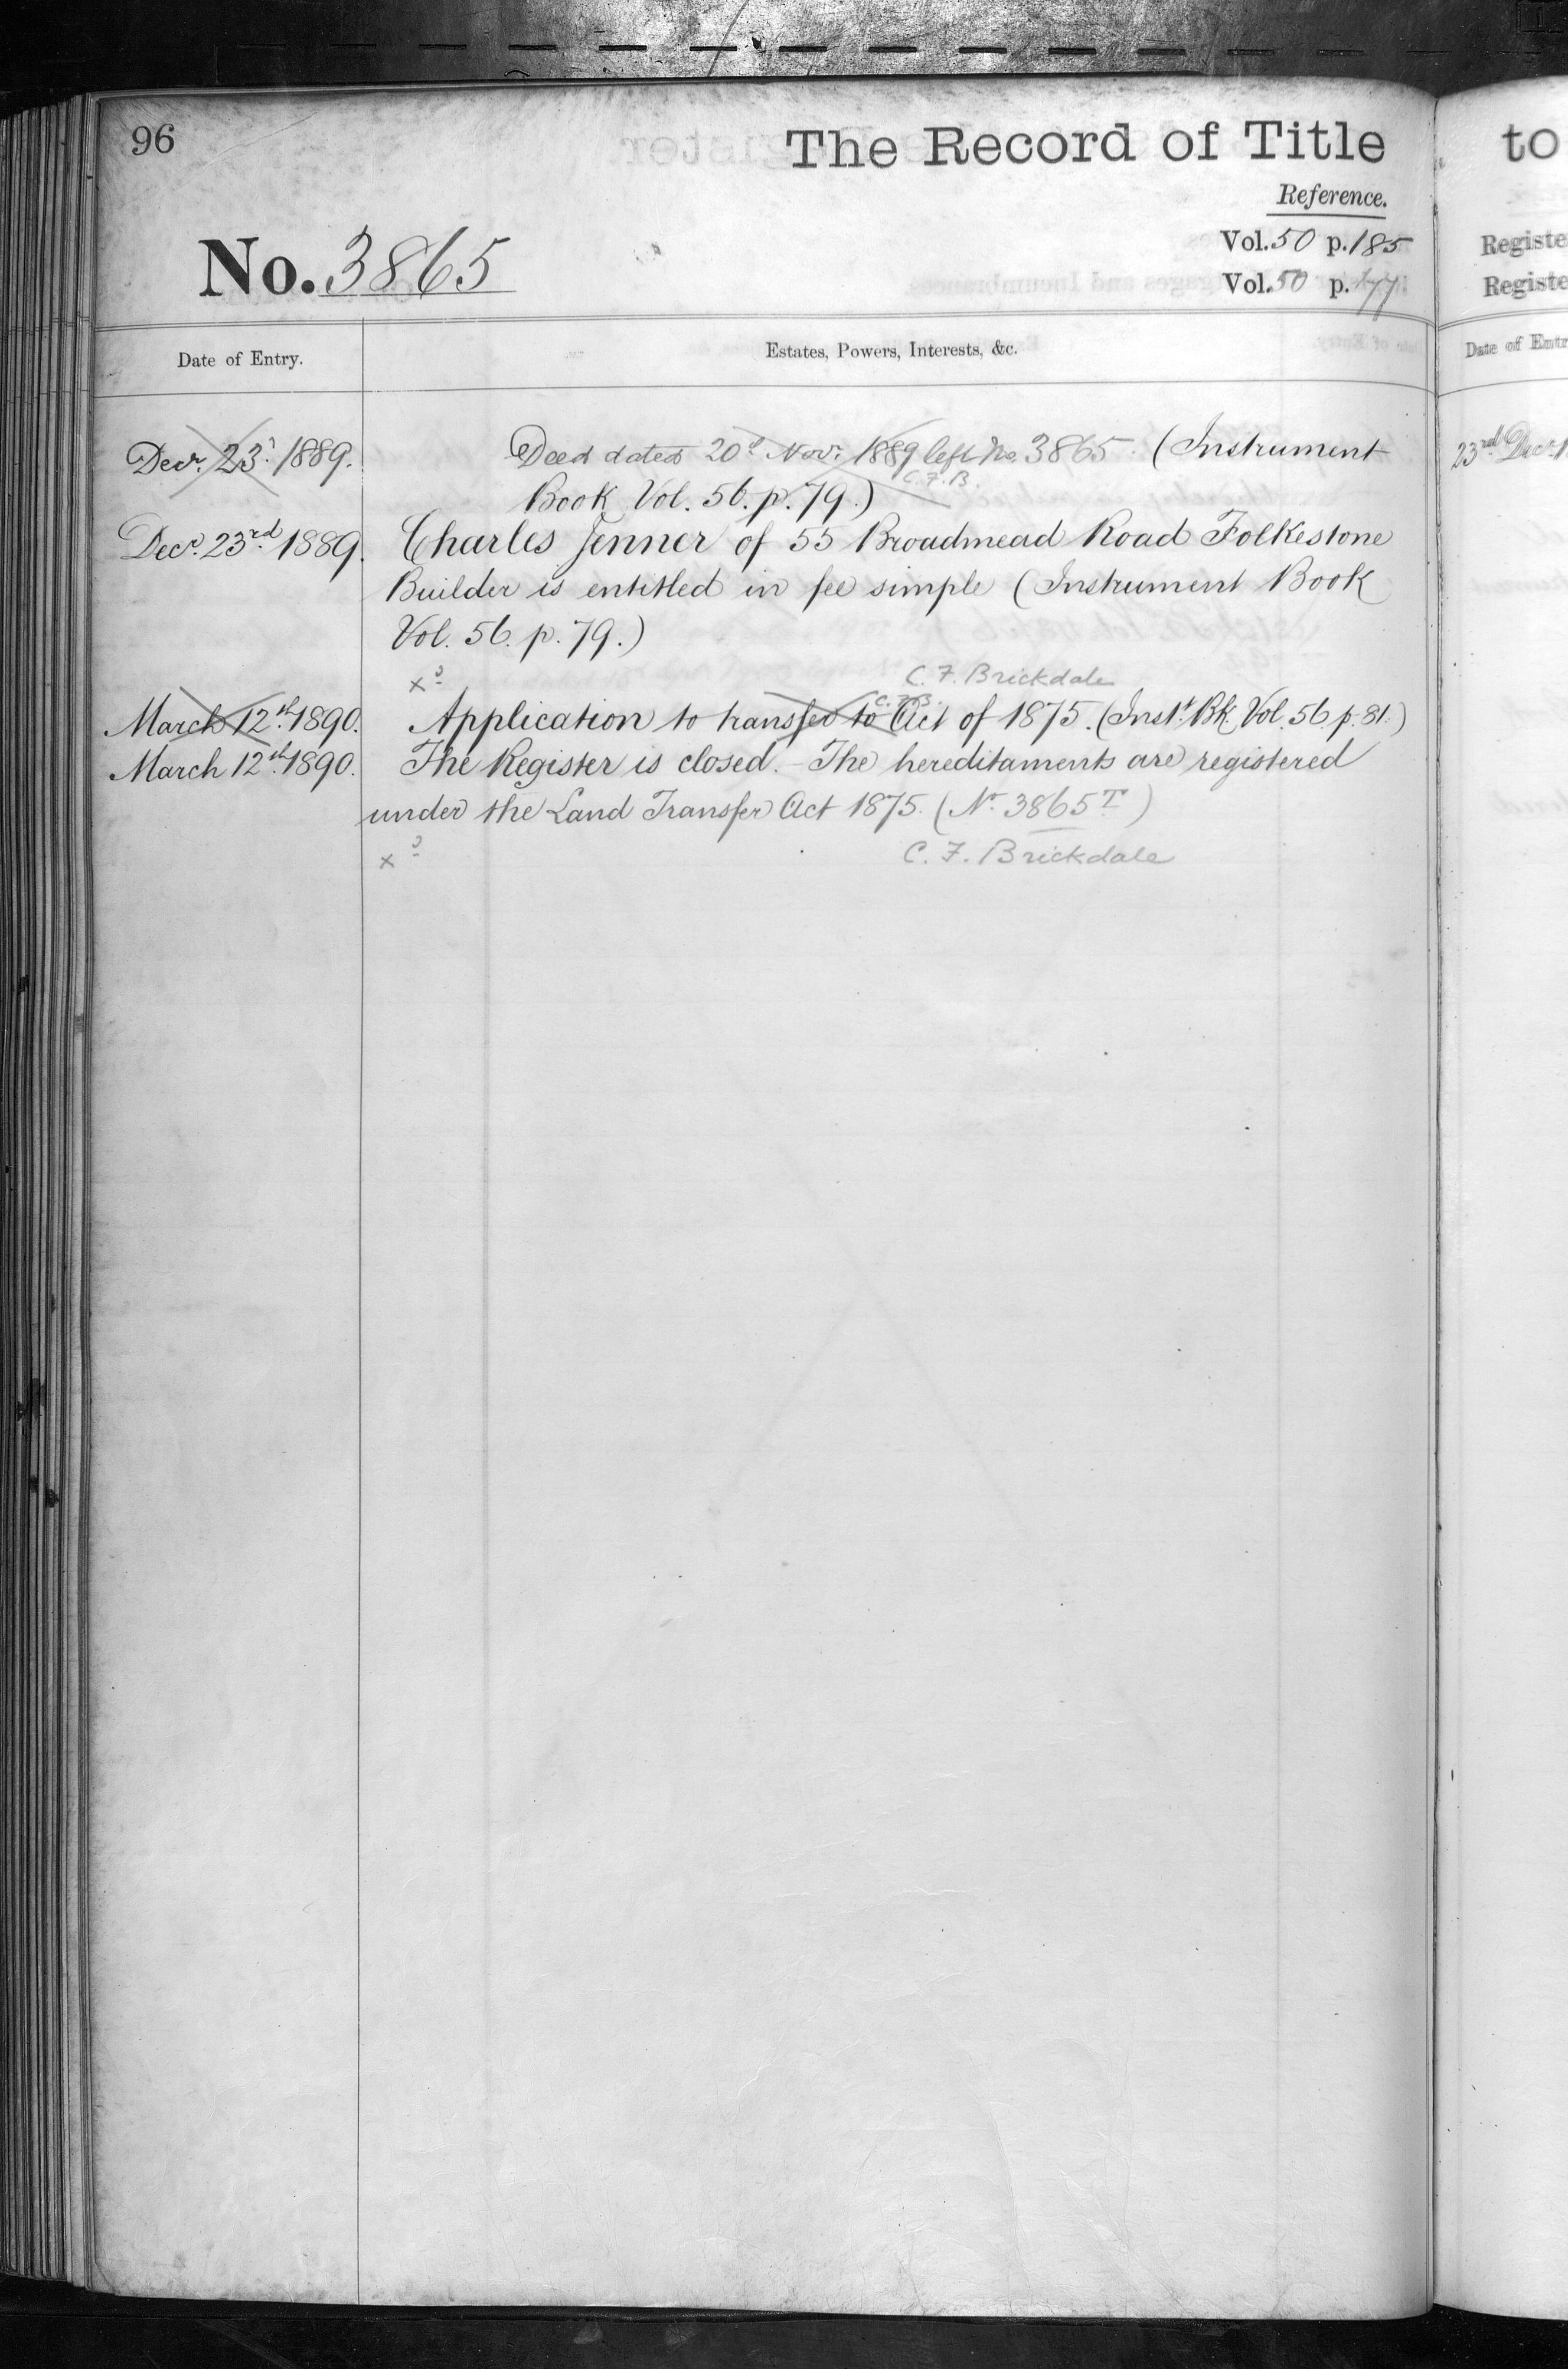 96
The Record of Title
Reference.
Vol. 50 p. 185
No. 3865
Vol. 50 p. 177
Date of Entry.
Estates, Powers, Interests, &c.
Decr. 23d. 1889.
Deed dated 20th Novr. 1889 left No. 3865. (Instrument
C.F.B.
Book Vol. 56. p. 79.)
Decr. 23rd 1889.
Charles Jenner of 55 Broadmead Road Folkestone
Builder is entitled in fee simple (Instrument Book
Vol. 56. p. 79.)
C. F. Brickdale
C.F.B.
March 12th. 1890.
Application to transfer to Act of 1875. (Inst. Bk. Vol. 56 p. 81.)
March 12th. 1890.
The Register is closed. – The hereditaments are registered
under the Land Transfer Act 1875. (No. 3865T)
C. F. Brickdale
to
Registe
Registe
Date of Entr
23rd Decr. 1